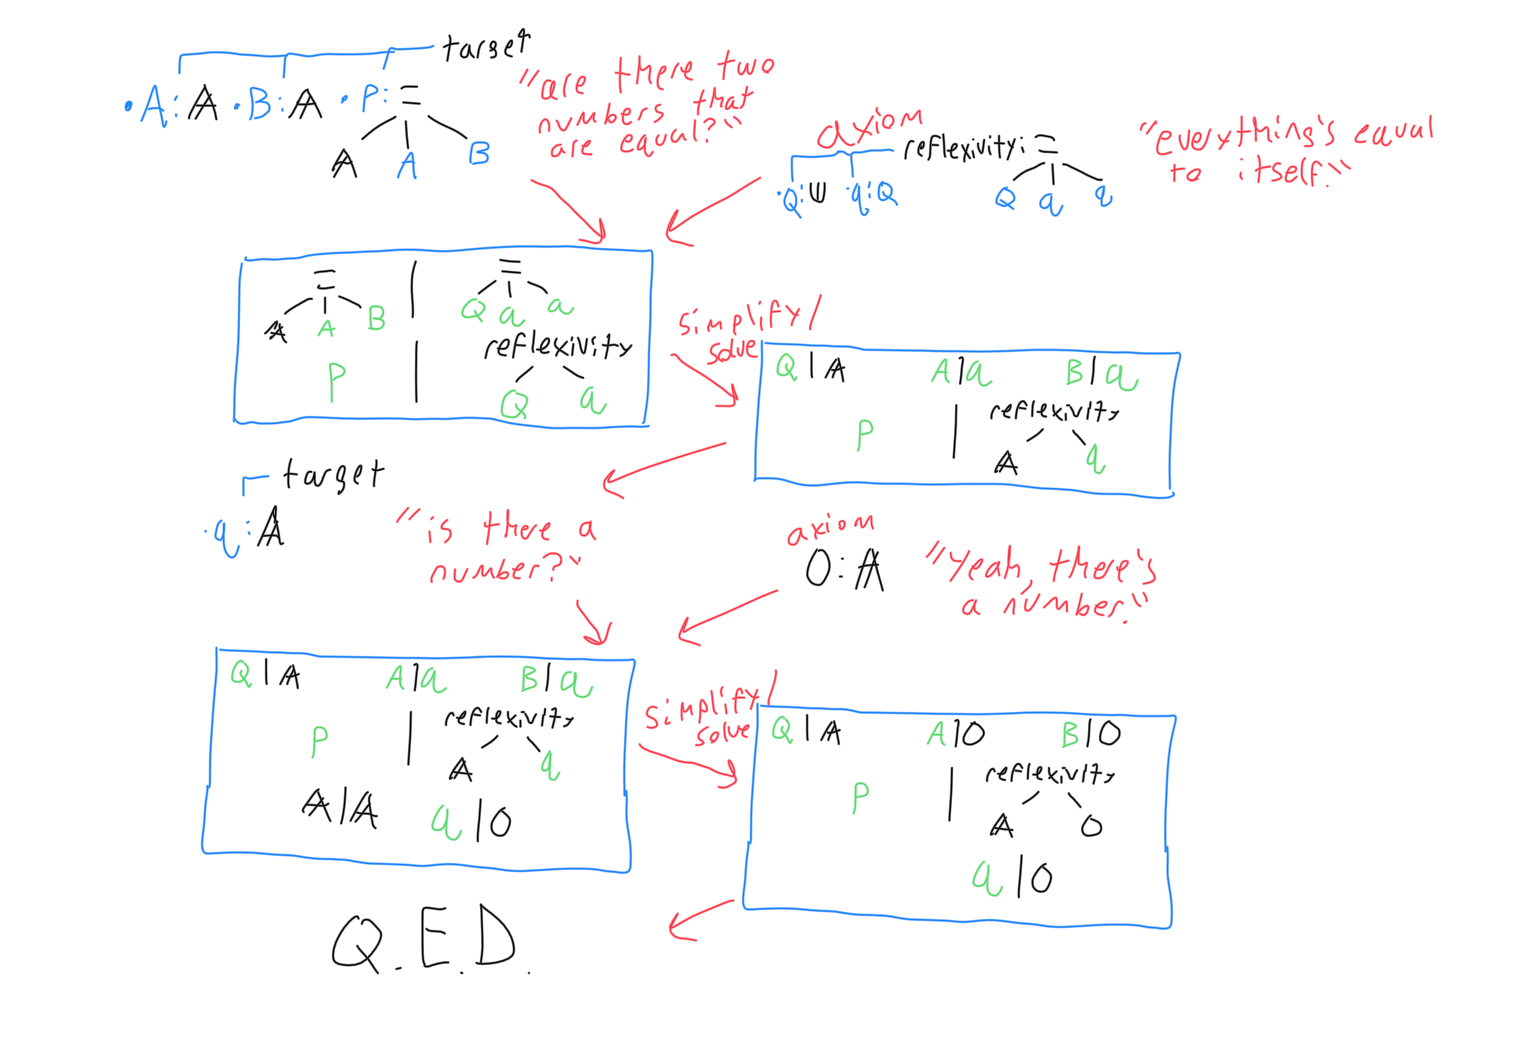 target
·A:𝔸 ·B:𝔸 ·P: =
𝔸 A B
"are there two
numbers that
are equal?"
axiom
reflexivity: =
·Q:𝕌 ·q:Q
Q q q
"everything's equal
to itself."
= | =
𝔸 A B Q q q
P | reflexivity
Q q
simplify/
solve
Q|𝔸 A|q B|q
P | reflexivity
𝔸 q
target
·q:𝔸
"is there a
number?"
axiom
0:𝔸
"Yeah, there's
a number."
Q|𝔸 A|q B|q
P | reflexivity
𝔸 q
𝔸|𝔸 q|0
simplify/
solve
Q|𝔸 A|0 B|0
P | reflexivity
𝔸 0
q|0
Q.E.D.